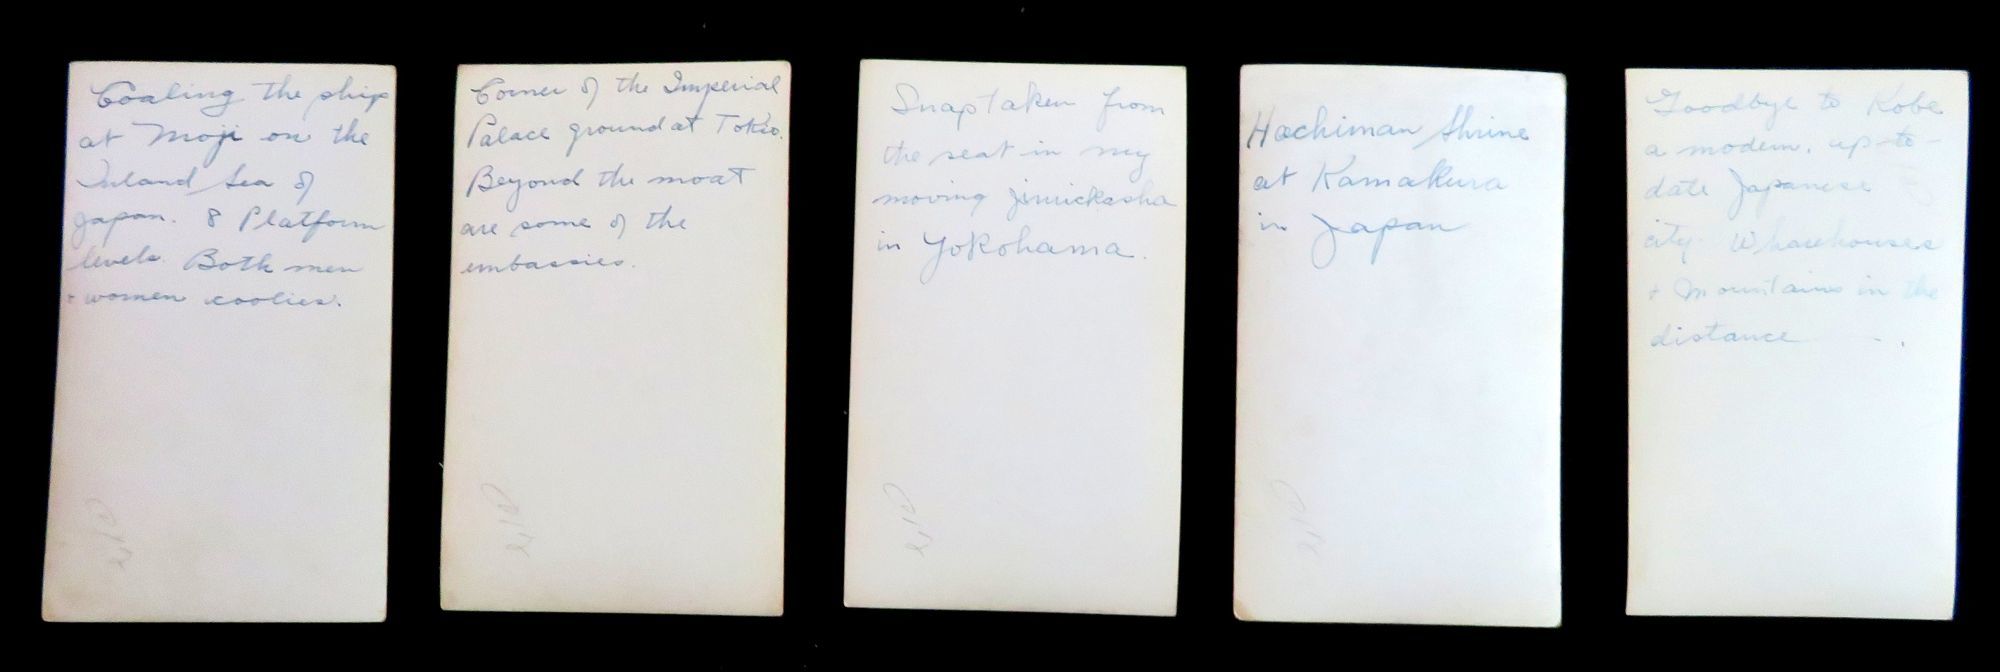 Coaling the ship
at Moji on the
Inland Sea of
Japan. 8 Platform
levels. Both men
+ women coolies.
Corner of the Imperial
Palace ground at Tokio.
Beyond the moat
are some of the
embassies.
Snap taken from
the seat in my
moving jinrickasha
in Yokohama.
Hachiman Shrine
at Kamakura
in Japan
Goodbye to Kobe
a modern, up-to-
date Japanese
city. Wharehouses
+ Mountains in the
distance